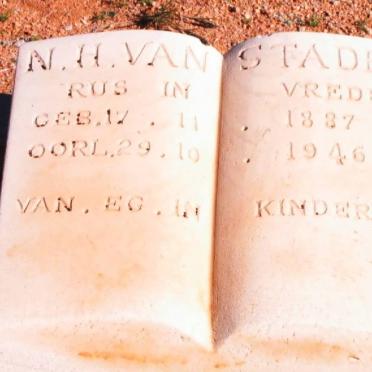 N.H. VAN STAD
RUS IN VRED
GEB. 17 . 11 . 1887
OORL. 29. 10 . 1946
VAN . EG . IN KINDER